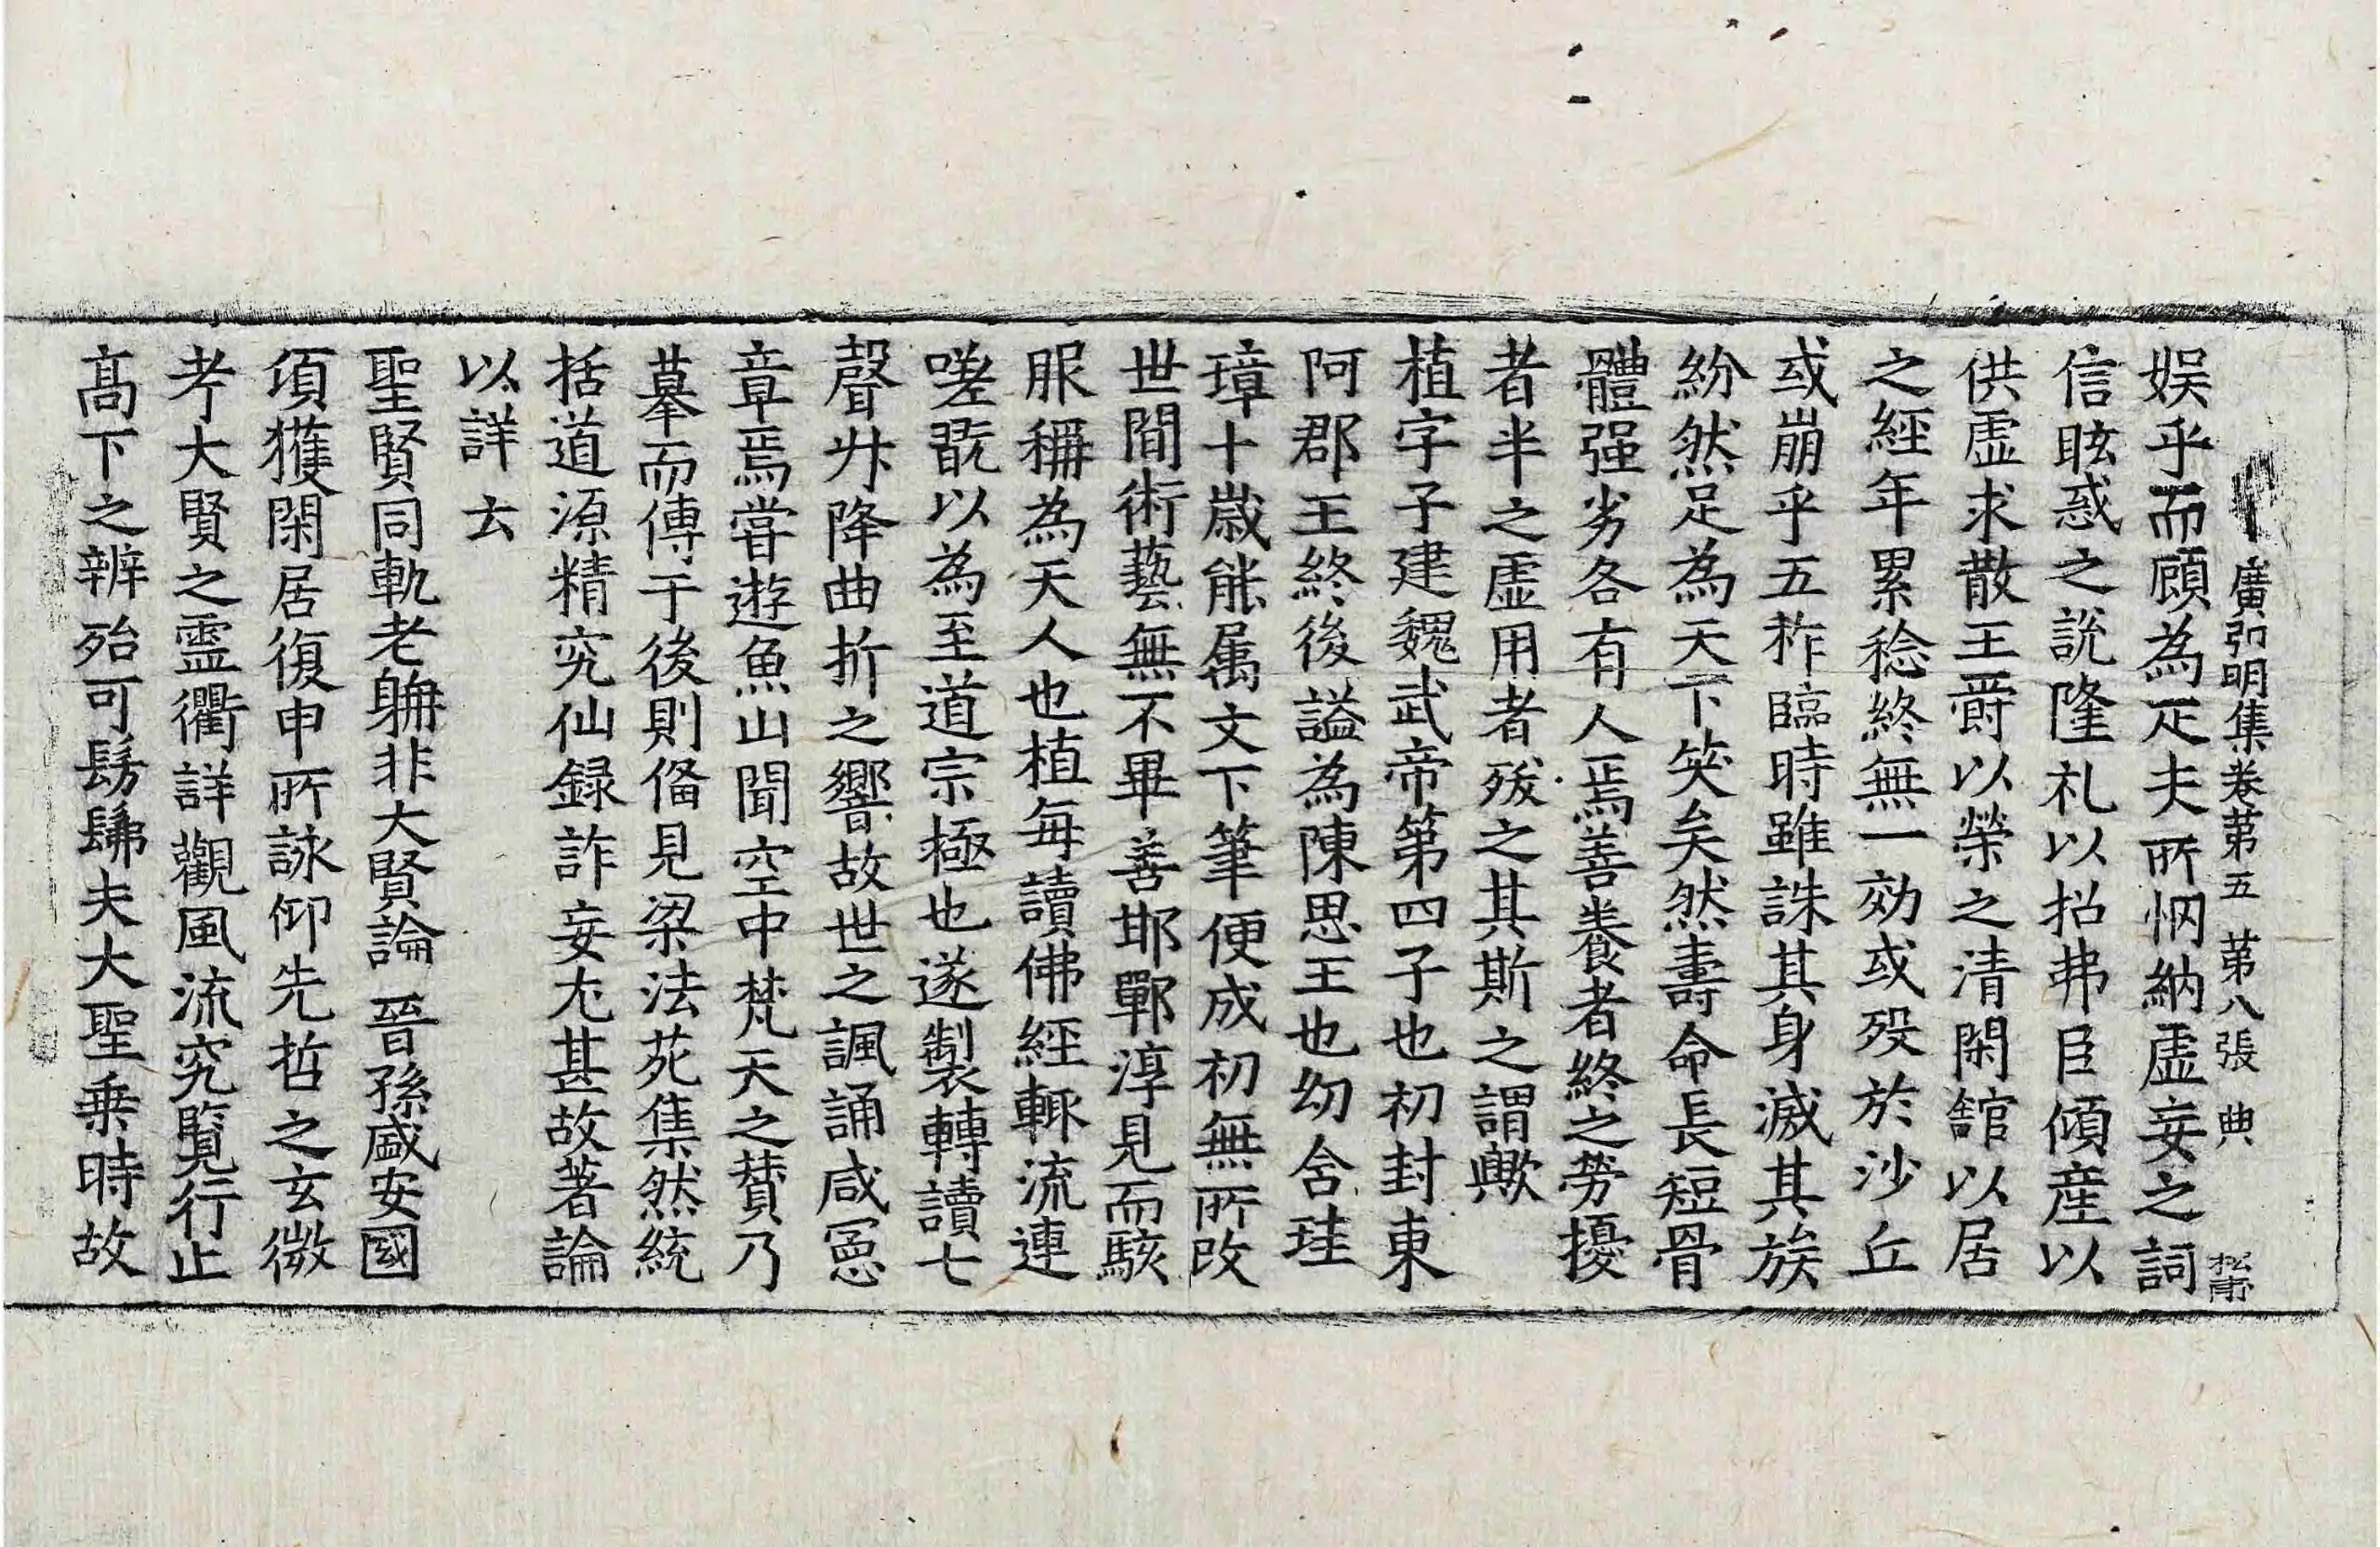 廣弘明集卷第五 第八張 典 松雨
娱乎而顧為疋夫所惘納虚妄之詞
信眩惑之說隆礼以招弗臣傾産以
供虚求散王爵以榮之清閑舘以居
之經年累稔終無一効或歿於沙丘
或崩乎五柞臨時雖誅其身滅其族
紛然足為天下笑矣然壽命長短骨
體强劣各有人焉善養者終之勞擾
者半之虚用者殀之其斯之謂歟
植字子建魏武帝第四子也初封東
阿郡王終後謚為陳思王也幼含珪
璋十歲能属文下筆便成初無所改
世間術藝無不畢善邯鄲淳見而駭
服稱為天人也植每讀佛經輙流連
嗟翫以為至道宗極也遂製轉讀七
聲升降曲折之響故世之諷誦咸憲
章焉甞遊魚山聞空中梵天之賛乃
摹而傳于後則俻見梁法苑集然統
括道源精究仙録詐妄尤甚故著論
以詳云
聖賢同軌老聃非大賢論 晉孫盛安國
頃獲閑居復申所詠仰先哲之玄微
考大賢之靈衢詳觀風流究覽行止
髙下之辨殆可髣髴夫大聖乗時故